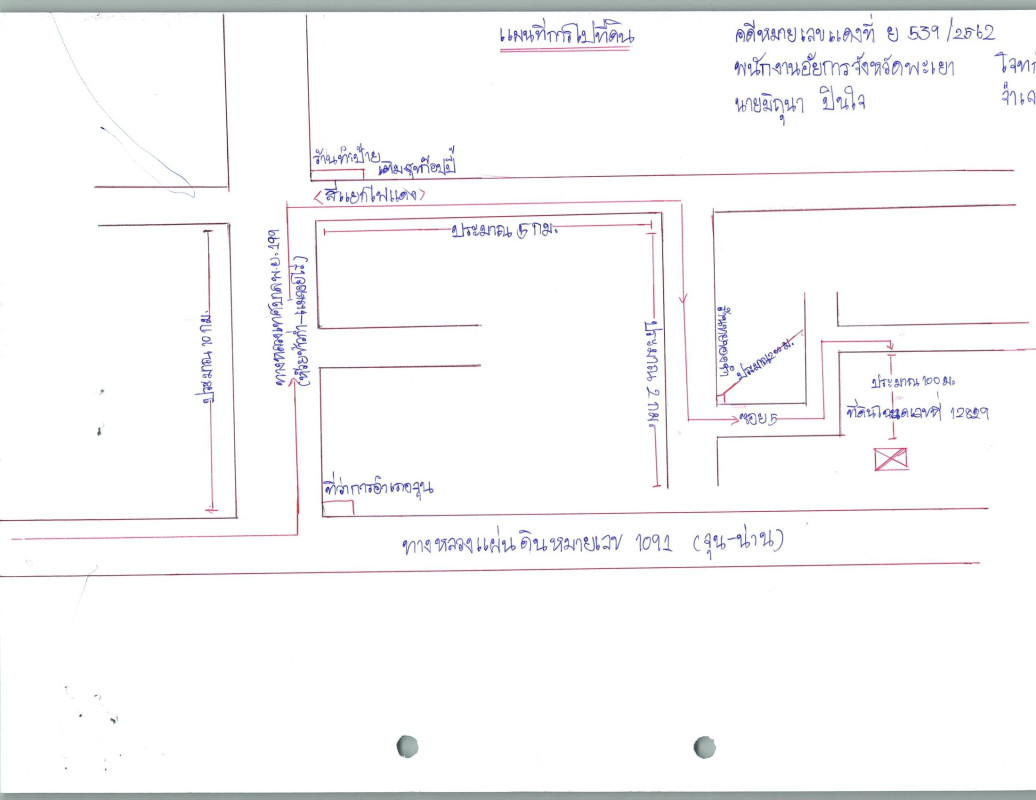 แผนที่การไปที่ดิน
คดีหมายเลขแดงที่ ย 539/2562
พนักงานอัยการจังหวัดพะเยา โจทก์
นายมิถุนา ปินใจ จำเล
ร้านทำป้าย
<สี่แยกไฟแดง>
ประมาณ 5 กม.
ประมาณ 10 กม.
ประมาณ 2 กม.
ประมาณ 200 ม.
ซอย 5
ประมาณ 100 ม.
ที่ดินโฉนดเลขที่ 12829
ที่ว่าการอำเภอจุน
ทางหลวงแผ่นดินหมายเลข 1091 (จุน-น่าน)